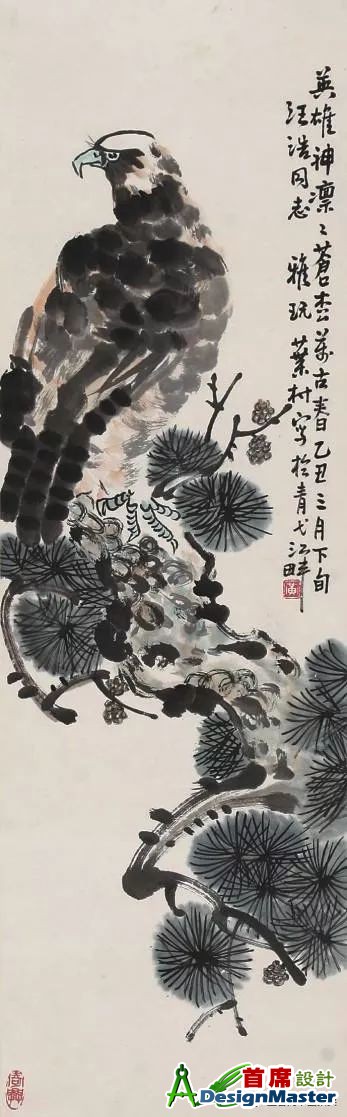 英雄神凛〻蒼枩萬古春乙丑三月下旬
汪浩同志 雅玩 葉村写於青弋江畔
黄
首席設計
ADesignMaster